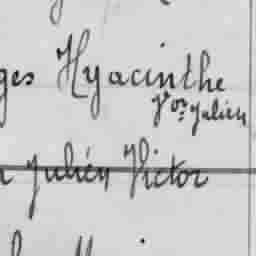 ges Hyacinthe
Vor Julien
Julien Victor